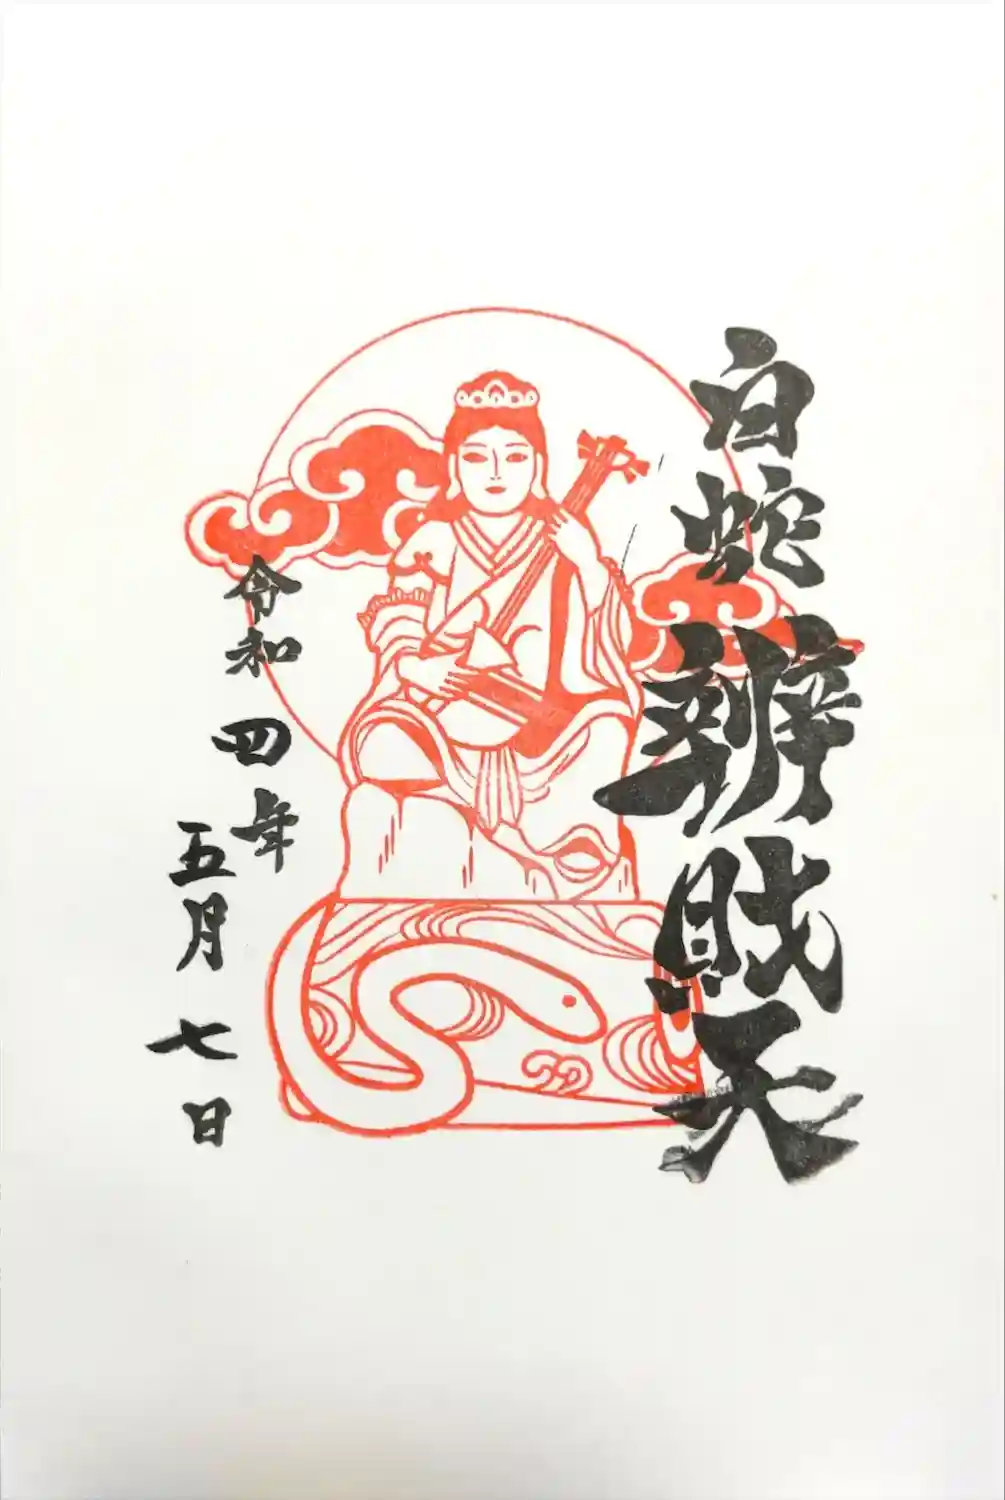 白蛇辨財天
令和四年
五月七日